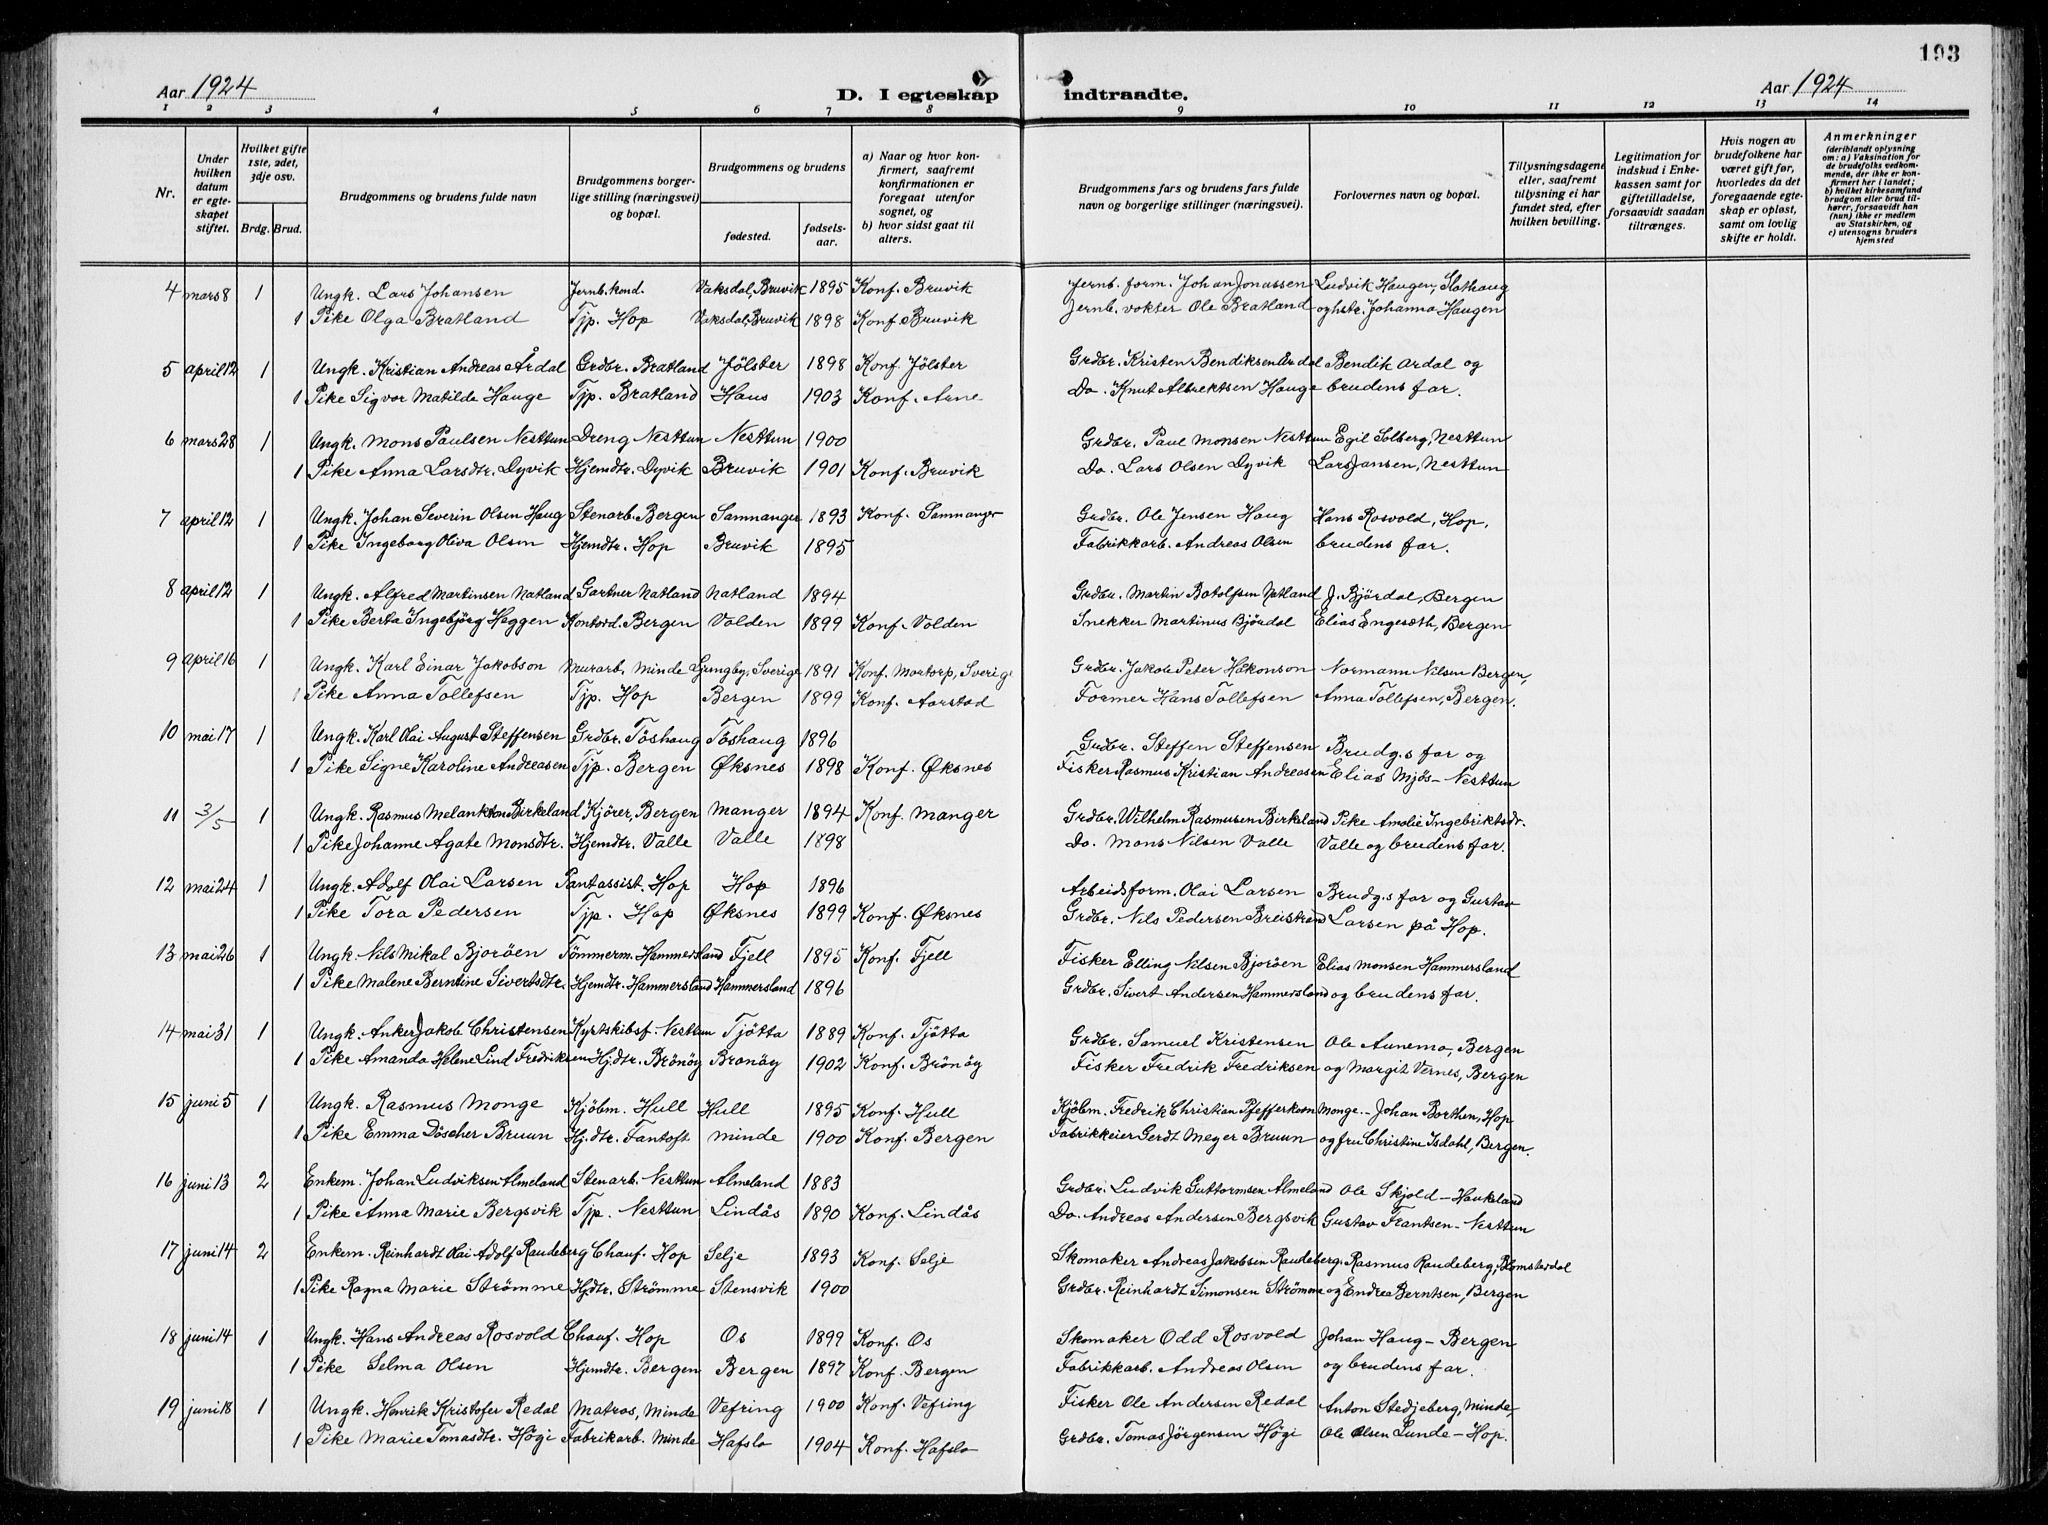 193
Aar 1924 D. I egteskap indtraadte. Aar 1924
1 2 3 4 5 6 7 8 9 10 11 12 13 14
Nr.
Under hvilken datum er egteskapet stiftet.
Hvilket gifte 1ste, 2det, 3dje osv.
Brdg. Brud.
Brudgommens og brudens fulde navn
Brudgommens borgerlige stilling (næringsvei) og bopæl.
Brudgommens og brudens
fødested.
fødselsaar.
a) Naar og hvor konfirmert, saafremt konfirmationen er foregaat utenfor sognet, og
b) hvor sidst gaat til alters.
Brudgommens fars og brudens fars fulde navn og borgerlige stillinger (næringsvei).
Forlovernes navn og bopæl.
Tillysningsdagene eller, saafremt tillysning ei har fundet sted, efter hvilken bevilling.
Legitimation for indskud i Enkekassen samt for giftetilladelse, forsaavidt saadan tiltrænges.
Hvis nogen av brudefolkene har været gift før, hvorledes da det foregaaende egteskap er opløst, samt om lovlig skifte er holdt.
Anmerkninger (deriblandt oplysning om: a) Vaksination for de brudefolks vedkommende, der ikke er konfirmert her i landet; b) hvilket kirkesamfund brudgom eller brud tilhører, forsaavidt han (hun) ikke er medlem av Statskirken, og c) utensogns bruders hjemsted
4 mars 8 1 Ungk. Lars Johansen Jernb.kond. Vaksdal, Bruvik 1895 Konf. Bruvik Jernb. form. Johan Jonassen Ludvik Haugen, Slathaug
1 Pike Olga Bratland Tjp. Hop Vaksdal, Bruvik 1898 Konf. Bruvik Jernb. vokter Ole Bratland og hstr. Johanna Haugen
5 april 12 1 Ungk. Kristian Andreas Årdal Grdbr. Bratland Jølster 1898 Konf. Jølster Grdbr. Kristen Bendiksen Årdal Bendik Ardal og
1 Pike Sigvor Matilde Hauge Tjp. Bratland Haus 1903 Konf. Arne Do. Knut Albrektsen Hauge brudens far.
6 mars 28 1 Ungk. Mons Paulsen Nesttun Dreng Nesttun Nesttun 1900 Grdbr. Paul Monsen Nesttun Egil Solberg, Nesttun
1 Pike Anna Larsdtr. Dyvik Hjemdtr. Dyvik Bruvik 1901 Konf. Bruvik Do. Lars Olsen Dyvik Lars Jansen, Nesttun
7 april 12 1 Ungk. Johan Severin Olsen Haug Stenarb. Bergen Samnanger 1893 Konf. Samnanger Grdbr. Ole Jensen Haug Hans Rosvold, Hop,
1 Pike Ingeborg Oliva Olsen Hjemdtr. Hop Bruvik 1895 Fabrikkarb. Andreas Olsen brudens far.
8 april 12 1 Ungk. Alfred Martinsen Natland Gartner Natland Natland 1894 Grdbr. Martin Botolfsen Natland J. Bjørdal, Bergen
1 Pike Berta Ingebjørg Heggen Kontord. Bergen Volden 1899 Konf. Volden Snekker Martinus Bjørdal Elias Engesæth, Bergen
9 april 16 1 Ungk. Karl Einar Jakobson Murarb. Minde Ljungby, Sverige 1891 Konf. Mortorp, Sverige Grdbr. Jakob Peter Håkonson Normann Nilsen Bergen,
1 Pike Anna Tollefsen Tjp. Hop Bergen 1899 Konf. Aarstad Former Hans Tollefsen Anna Tollefsen, Bergen.
10 mai 17 1 Ungk. Karl Olai August Steffensen Grdbr. Tøshaug Tøshaug 1896 Grdbr. Steffen Steffensen Brudg.s far og
1 Pike Signe Karoline Andreasen Tjp. Bergen Øksnes 1898 Konf. Øksnes Fisker Rasmus Kristian Andreasen Elias Mjøs - Nesttun
11 3/5 1 Ungk. Rasmus Melankton Birkeland Kjører, Bergen Manger 1894 Konf. Manger Grdbr. Wilhelm Rasmusen Birkeland Pike Amalie Ingebriktsdr.
1 Pike Johanne Agate Monsdtr. Hjemdtr. Valle Valle 1898 Do. Mons Nilsen Valle Valle og brudens far.
12 mai 24 1 Ungk. Adolf Olai Larsen Pantassist. Hop Hop 1896 Arbeidsform. Olai Larsen Brudg.s far og Gustav
1 Pike Tora Pedersen Tjp. Hop Øksnes 1899 Konf. Øksnes Grdbr. Nils Pedersen Breistrand Larsen på Hop.
13 mai 26 1 Ungk. Nils Mikal Bjorøen Tømmerm. Hammersland Fjell 1895 Konf. Fjell Fisker Elling Nilsen Bjorøen Elias Monsen Hammersland
1 Pike Malene Berntine Sivertsdtr. Hjemdtr. Hammersland Hammersland 1896 Grdbr. Sivert Andersen Hammersland og brudens far.
14 mai 31 1 Ungk. Anker Jakob Christensen Kyrtskibsf. Nesttun Tjøtta 1889 Konf. Tjøtta Grdbr. Samuel Kristensen Ole Aunemo, Bergen
1 Pike Amanda Helene Lind Fredriksen Hjdtr. Brønøy Brønøy 1902 Konf. Brønøy Fisker Fredrik Fredriksen og Margit Vernes, Bergen
15 juni 5 1 Ungk. Rasmus Monge Kjøbm. Hull Hull 1895 Konf. Hull Kjøbm. Fredrik Christian Pfefferkorn Monge. - Johan Borthen, Hop
1 Pike Emma Döscher Bruun Hj.dtr. Fantoft Minde 1900 Konf. Bergen Fabrikkeier Gerdt Meyer Bruun og fru Christine Isdahl, Bergen.
16 juni 13 2 Enkem. Johan Ludviksen Almeland Stenarb. Nesttun Almeland 1883 Grdbr. Ludvik Guttormsen Almeland Ole Skjold - Haukeland
1 Pike Anna Marie Bergsvik Tjp. Nesttun Lindås 1890 Konf. Lindås Do. Andreas Andersen Bergsvik Gustav Frantsen - Nesttun
17 juni 14 2 Enkem. Reinhardt Olai Adolf Raudeberg Chauf. Hop Selje 1893 Konf. Selje Skomaker Andreas Jakobsen Raudeberg. Rasmus Raudeberg, Blomsterdal
1 Pike Ragna Marie Strømme Hjdtr. Strømme Stensvik 1900 Grdbr. Reinhardt Simonsen Strømme og Endre Berntsen, Bergen
18 juni 14 1 Ungk. Hans Andreas Rosvold Chauf. Hop Os 1899 Konf. Os Skomaker Odd Rosvold Johan Haug - Bergen
1 Pike Selma Olsen Hjemdtr. Bergen Bergen 1897 Konf. Bergen Fabrikkarb. Andreas Olsen og brudens far.
19 juni 18 1 Ungk. Henrik Kristofer Redal Matros, Minde Vefring 1900 Konf. Vefring Fisker Ole Andersen Redal Anton Stedjeberg, Minde,
1 Pike Marie Tomasdtr. Høgi Fabrikarb. Minde Hafslo 1904 Konf. Hafslo Grdbr. Tomas Jørgensen Høgi Ole Olsen Lunde - Hop.